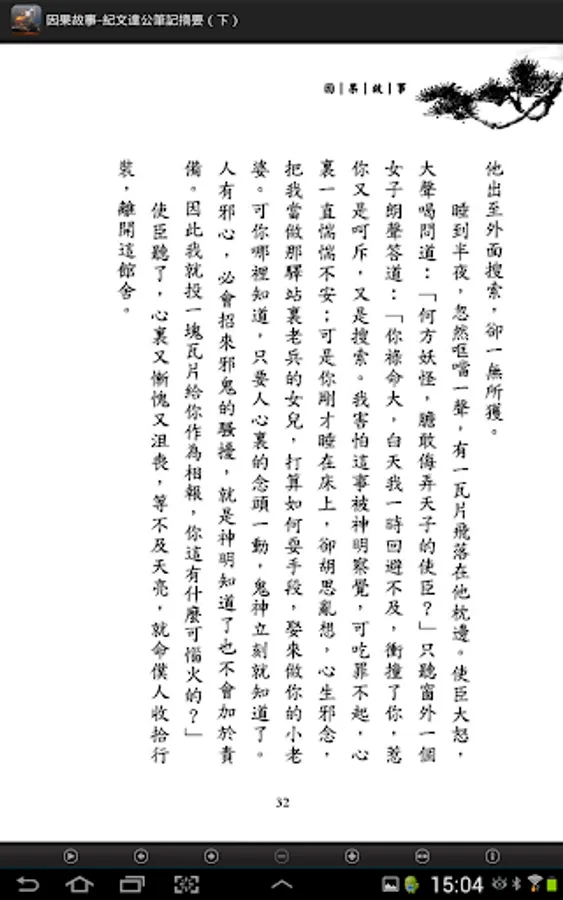 因果故事-紀文達公筆記摘要（下）
因|果|故|事
他出至外面搜索，卻一無所獲。
睡到半夜，忽然哐噹一聲，有一瓦片飛落在他枕邊。使臣大怒，
大聲喝問道：「何方妖怪，膽敢侮弄天子的使臣？」只聽窗外一個
女子朗聲答道：「你祿命大，白天我一時回避不及，衝撞了你，惹
你又是呵斥，又是搜索。我害怕這事被神明察覺，可吃罪不起，心
裏一直惴惴不安；可是你剛才睡在床上，卻胡思亂想，心生邪念，
把我當做那驛站裏老兵的女兒，打算如何耍手段，娶來做你的小老
婆。可你哪裡知道，只要人心裏的念頭一動，鬼神立刻就知道了。
人有邪心，必會招來邪鬼的騷擾，就是神明知道了也不會加於責
備。因此我就投一塊瓦片給你作為相報，你這有什麼可惱火的？」
使臣聽了，心裏又慚愧又沮喪，等不及天亮，就命僕人收拾行
裝，離開這館舍。
32
15:04